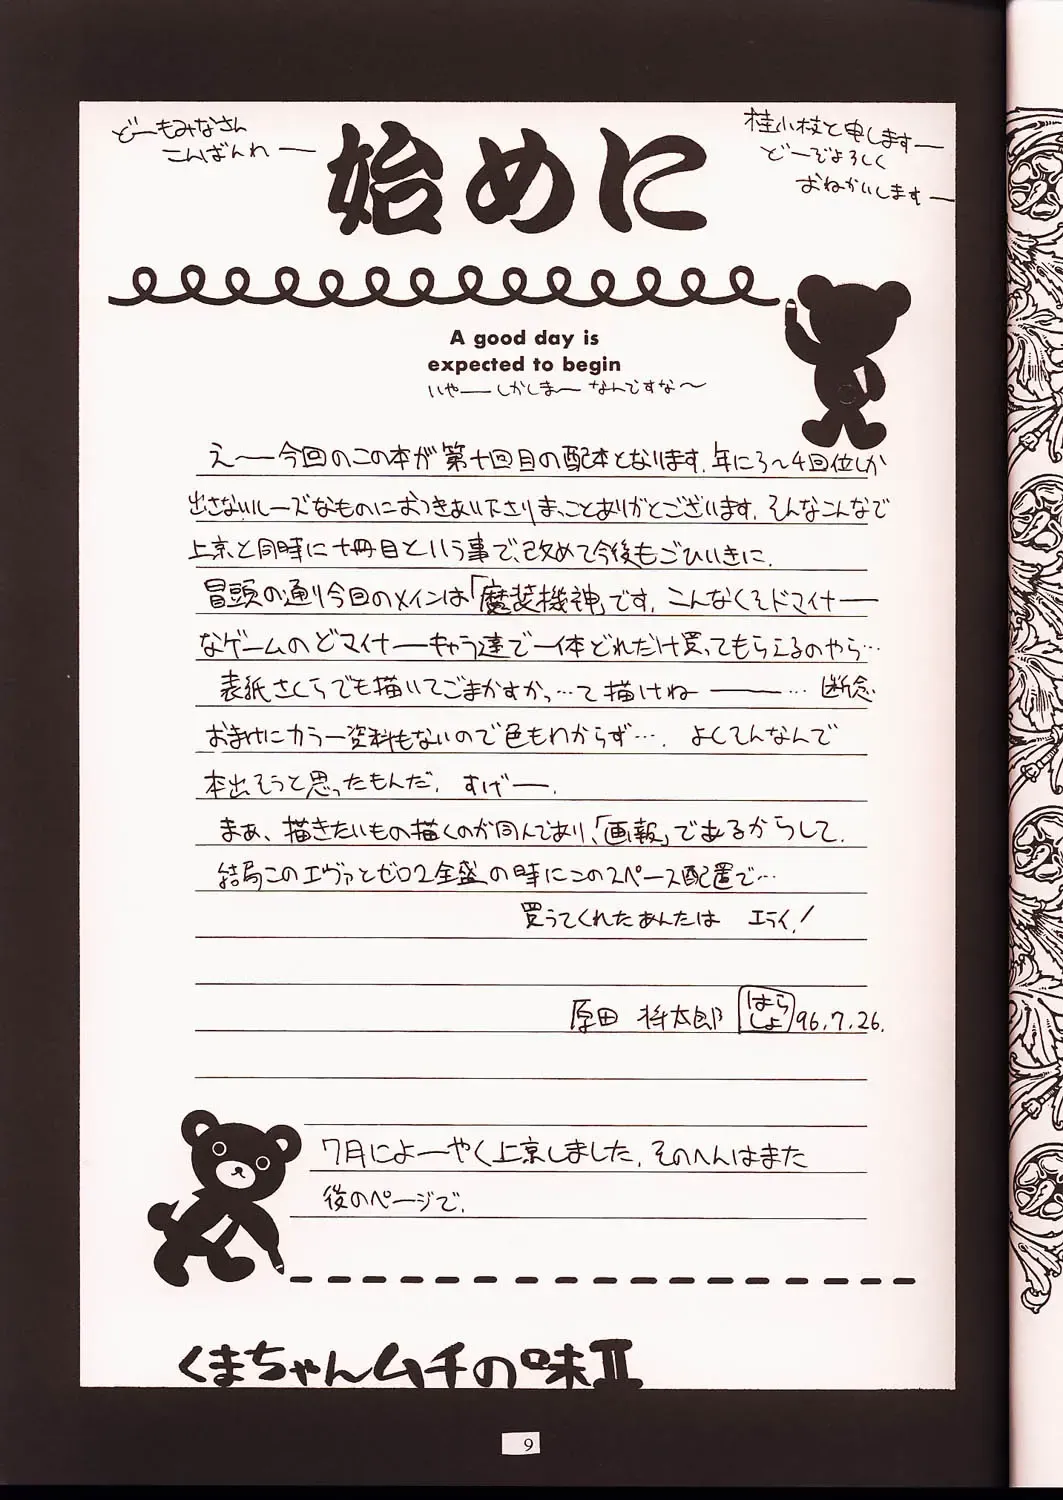 どーもみなさん
こんばんわー
始めに
桂小枝と申しますー
どーぞよろしく
おねがいしますー
A good day is
expected to begin
いやーしかしまーなんですな〜
えー今回のこの本が第十回目の配本となります。年に3〜4回位しか
出さないルーズなものにおつきあい下さりまっことありがとございます。そんなこんなで
上京と同時に十冊目という事で、改めて今後もごひいきに。
冒頭の通り今回のメインは「魔装機神」です。こんなくそドマイナー
なゲームのどマイナーキャラ達で一体どれだけ買ってもらえるのやら…
表紙さくらでも描いてごまかすかっ…て描けねー…断念
おまけにカラー資料もないので色もわからず…。よくそんなんで
本出そうと思ったもんだ。すげー。
まぁ、描きたいもの描くのが同人であり、「画報」であるからして。
結局このエヴァとゼロ2全盛の時にこのスペース配置で…
買うてくれたあんたは エライ!
原田 将太郎 はらしょ 96.7.26.
7月によーやく上京しました。そのへんはまた
後のページで。
くまちゃんムチの味II
9